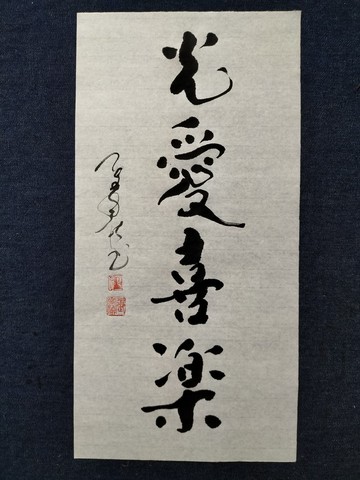 光愛喜楽